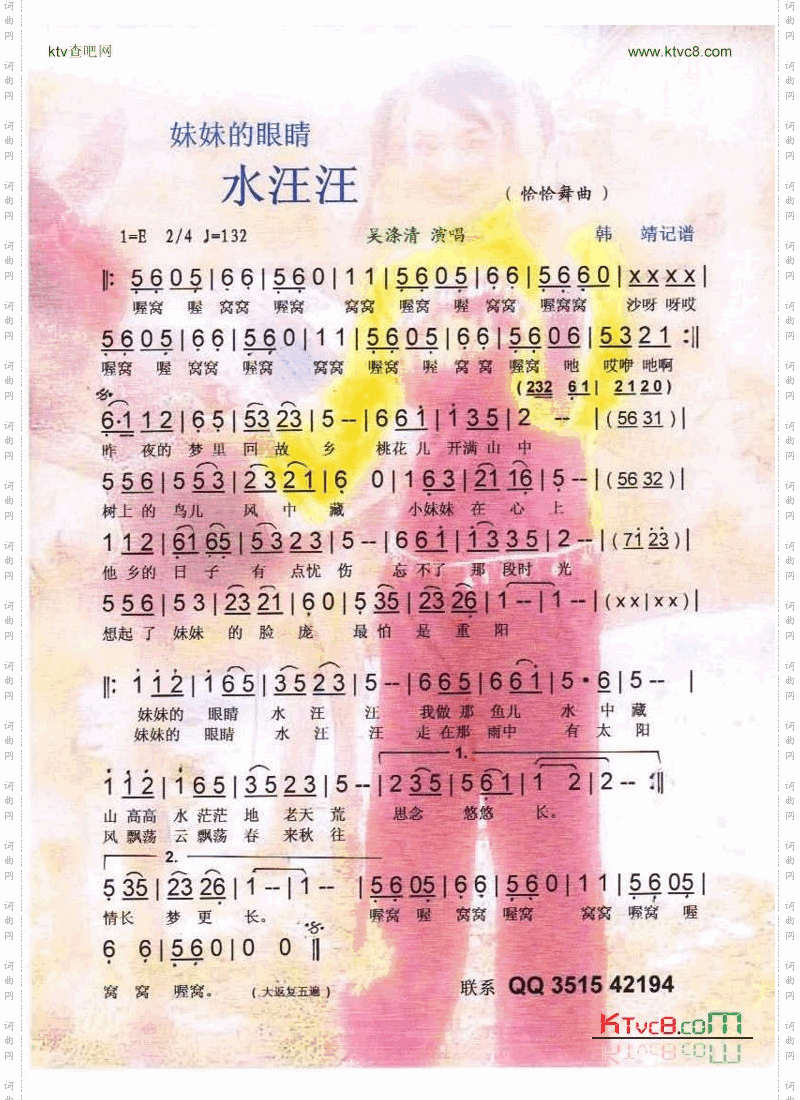 ktv查吧网 www.ktvc8.com
妹妹的眼睛
水汪汪 （恰恰舞曲）
1=E 2/4 ♩=132 吴涤清 演唱 韩 靖记谱
‖: 5 6 0 5 | 6 6 | 5 6 0 | 1 1 | 5 6 0 5 | 6 6 | 5 6 6 0 | x x x x |
喔窝 喔 窝窝 喔窝 窝窝 喔窝 喔 窝窝 喔窝窝 沙呀 呀哎
5 6 0 5 | 6 6 | 5 6 0 | 1 1 | 5 6 0 5 | 6 6 | 5 6 0 6 | 5 3 2 1 :‖
喔窝 喔 窝窝 喔窝 窝窝 喔窝 喔 窝窝 喔窝 吔 哎咿 吔啊
(232 6 1 | 2 1 2 0)
6·1 1 2 | 6 5 | 53 23 | 5 -- | 6 6 1 | 1 3 5 | 2 -- | (56 31) |
昨 夜的 梦里 回 故 乡 桃花 儿 开满 山 中
5 5 6 | 5 5 3 | 2 3 2 1 | 6 0 | 1 6 3 | 21 16 | 5 -- | (56 32) |
树上 的 鸟儿 风 中 藏 小妹妹 在 心 上
1 1 2 | 61 65 | 5 3 2 3 | 5 -- | 6 6 1 | 1 3 3 5 | 2 -- | (71 23) |
他 乡的 日 子 有 点忧 伤 忘 不了 那 段时 光
5 5 6 | 5 3 | 23 21 | 6 0 | 5 35 | 23 26 | 1 -- | 1 -- | (x x | x x) |
想起 了 妹妹 的 脸 庞 最 怕 是 重 阳
‖: 1 1 2 | 1 6 5 | 3 5 2 3 | 5 -- | 6 6 5 | 6 6 1 | 5 · 6 | 5 -- |
妹妹的 眼睛 水 汪 汪 我做 那 鱼儿 水 中 藏
妹妹的 眼睛 水 汪 汪 走 在那 雨中 有 太 阳
1.
1 1 2 | 1 6 5 | 3 5 2 3 | 5 -- | 2 3 5 | 5 6 1 | 1 2 | 2 -- :‖
山 高高 水 茫茫 地 老天 荒 思念 悠悠 长。
风 飘荡 云 飘荡 春 来秋 往
2.
5 35 | 23 26 | 1 -- | 1 -- | 5 6 05 | 6 6 | 5 6 0 | 1 1 | 5 6 05 |
情长 梦 更 长。 喔窝 喔 窝窝 喔窝 窝窝 喔窝 喔
6 6 | 5 6 0 | 0 0 ‖
窝 窝 喔窝。 （大返复五遍） 联系 QQ 3515 42194
KTvc8.com